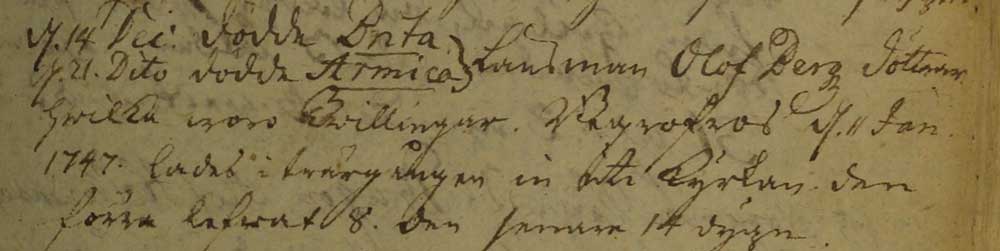 d. 14 Dec. dödde Brita
d. 21. Dito dödde Armica } Lansman Olof Berg döttrar
hwilka woro Twillingar. Begrofwos d. 11 Jan.
1747. lades i trärgången in uti Kÿrkan. den
förra lefwat 8. den senare 14 dygn.